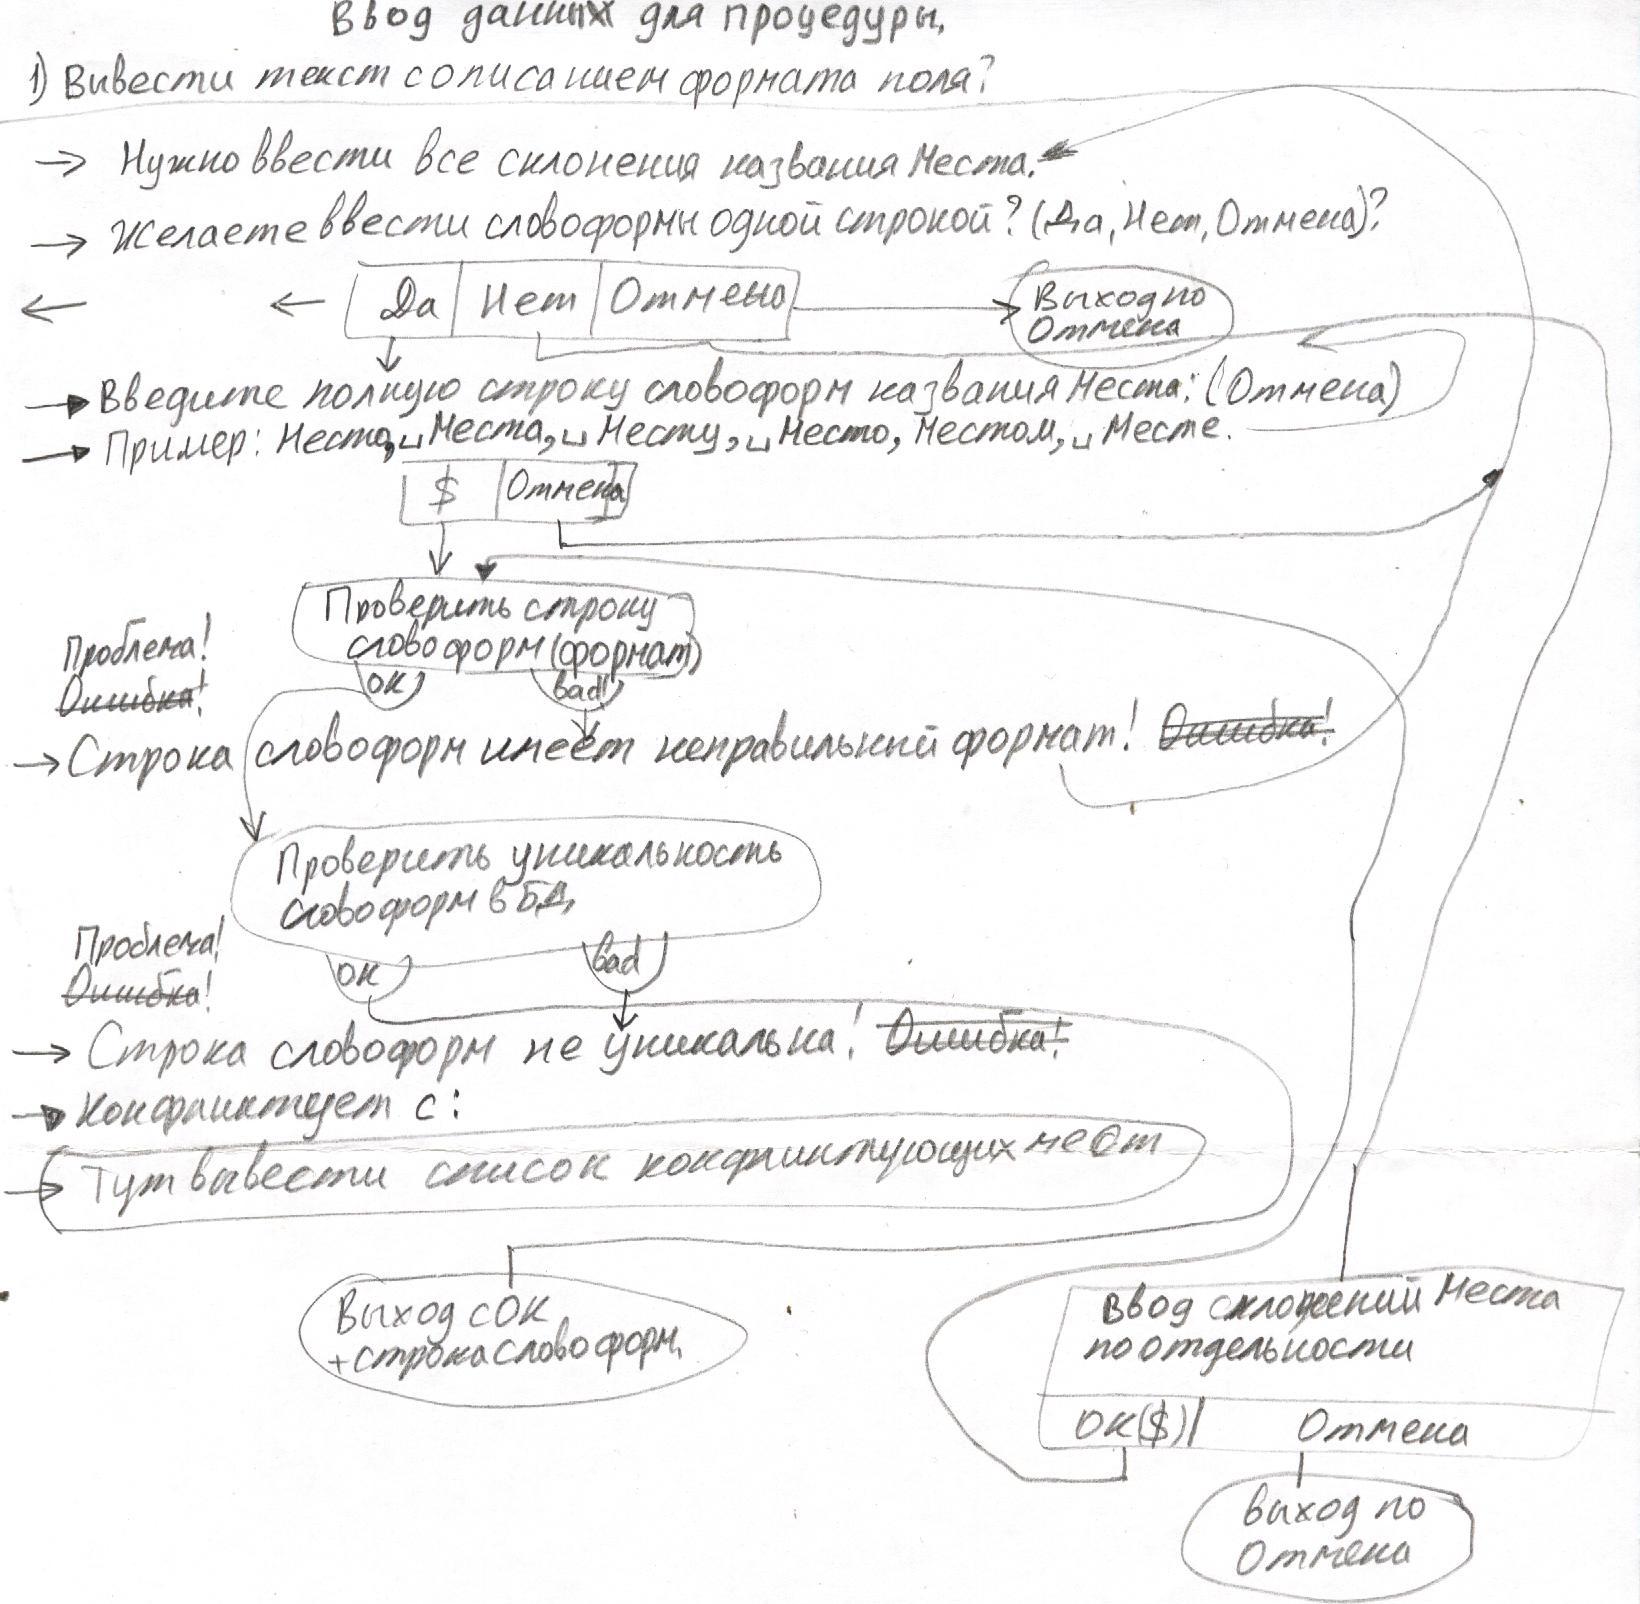 Ввод данных для процедуры.
1) Вывести текст с описанием формата поля?
→ Нужно ввести все склонения названия Места.
→ Желаете ввести словоформы одной строкой? (Да, Нет, Отмена)?
← ← Да Нет Отмена → Выход по
Отмена
→ Введите полную строку словоформ названия Места: (Отмена)
→ Пример: Место,␣Места,␣Месту,␣Место, Местом,␣Месте.
$ Отмена
Проверить строку
словоформ (формат)
ОК bad!
Проблема!
Ошибка!
→ Строка словоформ имеет неправильный формат! Ошибка!
Проверить уникальность
словоформ в БД.
ОК bad
Проблема!
Ошибка!
→ Строка словоформ не уникальна! Ошибка!
→ Конфликтует с:
→ Тут вывести список конфликтующих мест
Выход с ОК
+ строка словоформ.
Ввод склонений Места
по отдельности
ОК($) Отмена
Выход по
Отмена